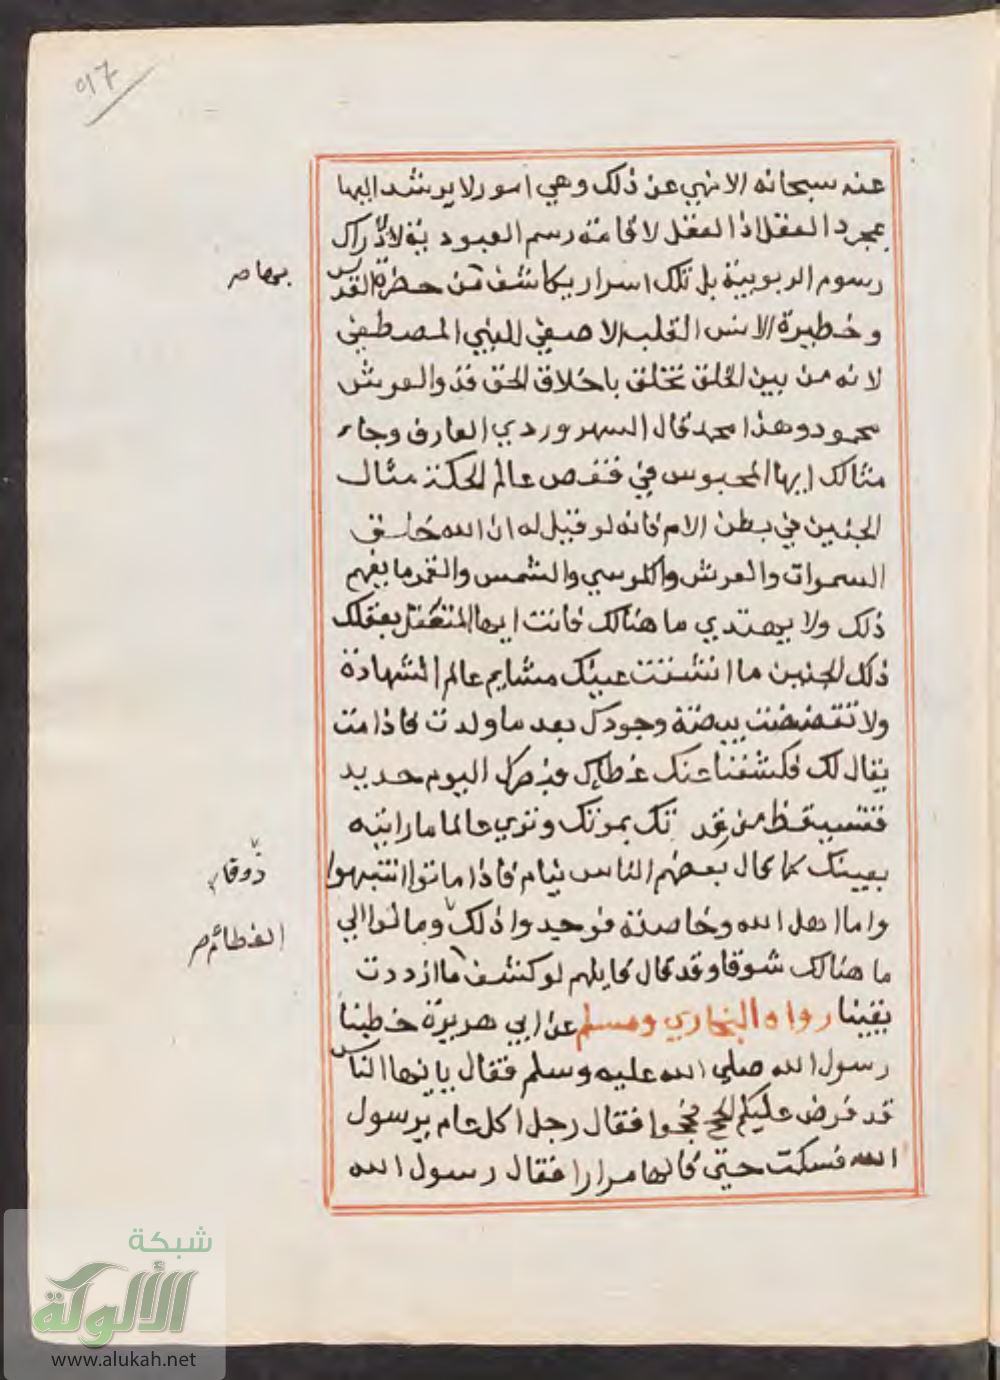 97
عنه سبحانه الا نهي عن ذلك وهي امور لا يرشد اليها
بمجرد العقل اذ العقل لاقامة رسم العبودية لا لادراك
رسوم الربوبية بل تلك اسرار يكاشف من حضرة القدس
بها صح
وخطيرة الانس القلب الاصفي للنبي المصطفي
لانه من بين الخلق تخلق باخلاق الحق فذو العرش
محمود وهذا محمد قال السهروردي العارف وجاء
مثالك ايها المحبوس في قفص عالم الحكمة مثال
الجنين في بطن الام فانه لو قيل له ان الله خالق
السموات والعرش والكرسي والشمس والقمر ما يفهم
ذلك ولا يهتدي ما هنالك فانت ايها المتعقل بعقلك
ذلك الجنين ما انشقت عينك مشايم عالم الشهادة
ولا بيضة وجودك بعد ما ولدت فاذا مت
يقال لك فكشفنا عنك غطاءك فبصرك اليوم حديد
من تك بموتك وتري عالما ما رايته
بعينك كما قال بعضهم الناس نيام فاذا ماتوا انتبهوا
واما اهل الله وخاصته ذلك وما الي
ذوقا
ما هنالك شوقا وقد قال قايلهم لو كشف ما ازددت
الغطا صح
يقينا رواه البخاري ومسلم عن ابي هريرة خطبنا
رسول الله صلي الله عليه وسلم فقال يا ايها الناس
قد فرض عليكم الحج فحجوا فقال رجل اكل عام يرسول
الله فسكت حتي قالها مرارا فقال رسول الله
شبكة
الألوكة
www.alukah.net